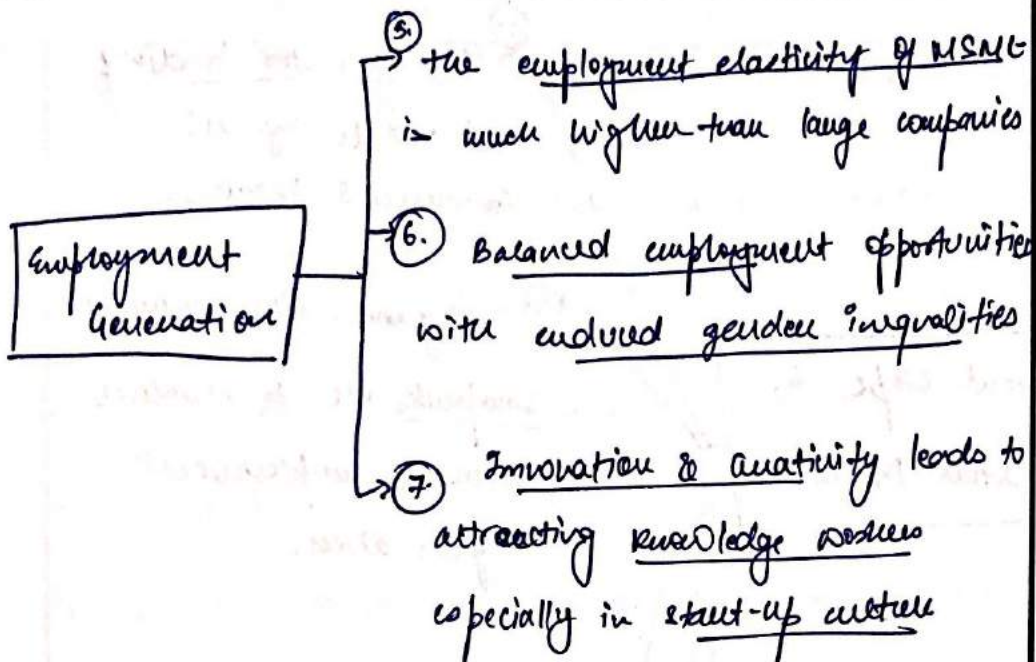 Employment
Generation
5.
the employment elasticity of MSME
is much higher than large companies
6.
Balanced employment opportunities
with reduced gender inequalities
7.
Innovation & creativity leads to
attracting knowledge workers
especially in start-up culture